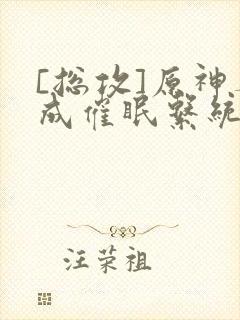 [总攻]原神
成催眠系统
汪荣祖